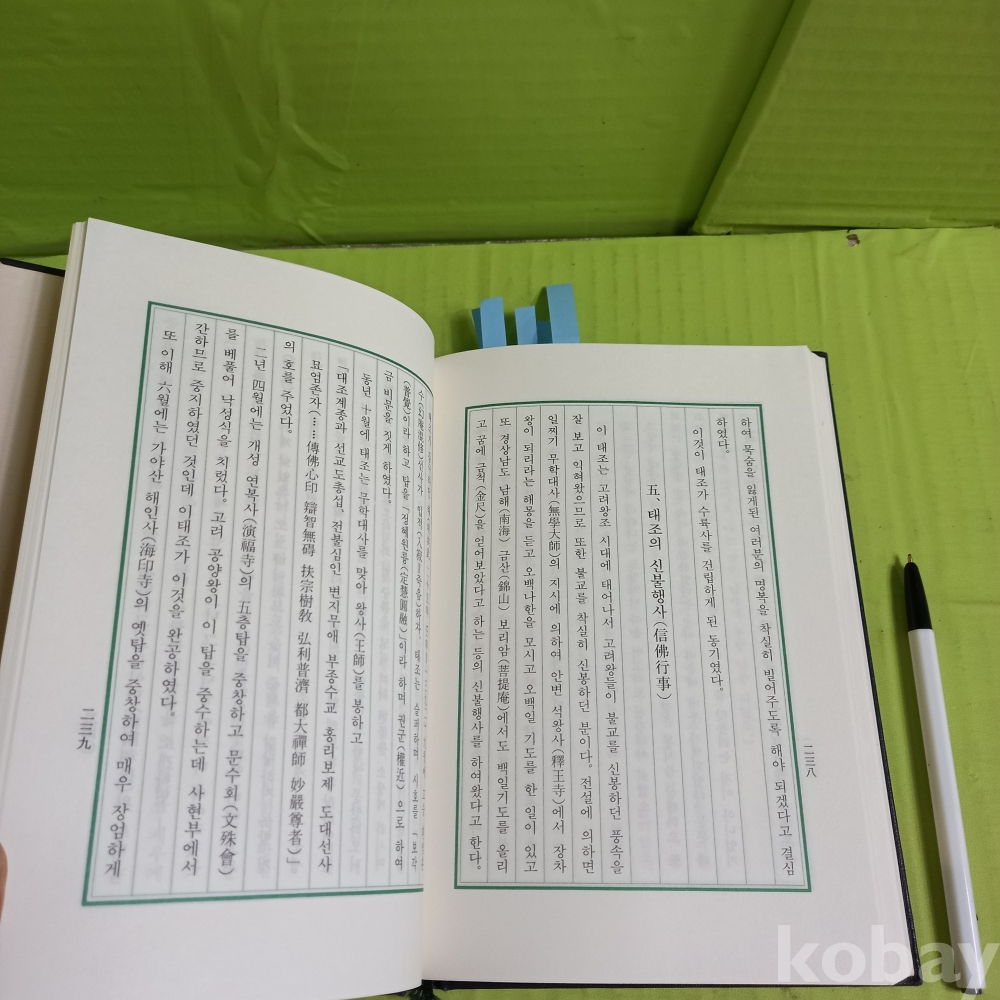 하여 목숨을 잃게된 여러분의 명복을 착실히 빌어주도록 해야 되겠다고 결심
하였다.
이것이 태조가 수륙사를 건립하게 된 동기였다.
五、태조의 신불행사(信佛行事)
이 태조는 고려왕조 시대에 태어나서 고려왕들이 불교를 신봉하던 풍속을
잘 보고 익혀왔으므로 또한 불교를 착실히 신봉하던 분이다. 전설에 의하면
일찌기 무학대사(無學大師)의 지시에 의하여 안변 석왕사(釋王寺)에서 장차
왕이 되리라는 해몽을 듣고 오백나한을 모시고 오백일 기도를 한 일이 있고
또 경상남도 남해(南海) 금산(錦山) 보리암(菩提庵)에서도 백일기도를 올리
고 꿈에 금척(金尺)을 얻어보았다고 하는 등의 신불행사를 하여왔다고 한다.
二三八
(普覺)이라 하고 탑을 「정혜원융(定慧圓融)」이라 하며 권근(權近)으로 하여
금 비문을 짓게 하였다.
동년 十월에 태조는 무학대사를 맞아 왕사(王師)를 봉하고
「대조계종과 선교도총섭、전불심인 변지무애 부종수교 홍리보제 도대선사
묘엄존자(……傳佛心印 辯智無碍 扶宗樹敎 弘利普濟 都大禪師 妙嚴尊者)」
의 호를 주었다.
二년 四월에는 개성 연복사(演福寺)의 五층탑을 중창하고 문수회(文殊會)
를 베풀어 낙성식을 치렀다. 고려 공양왕이 이 탑을 중수하는데 사현부에서
간하므로 중지하였던 것인데 이태조가 이것을 완공하였다.
또 이해 六월에는 가야산 해인사(海印寺)의 옛탑을 중창하여 매우 장엄하게
二三九
kobay